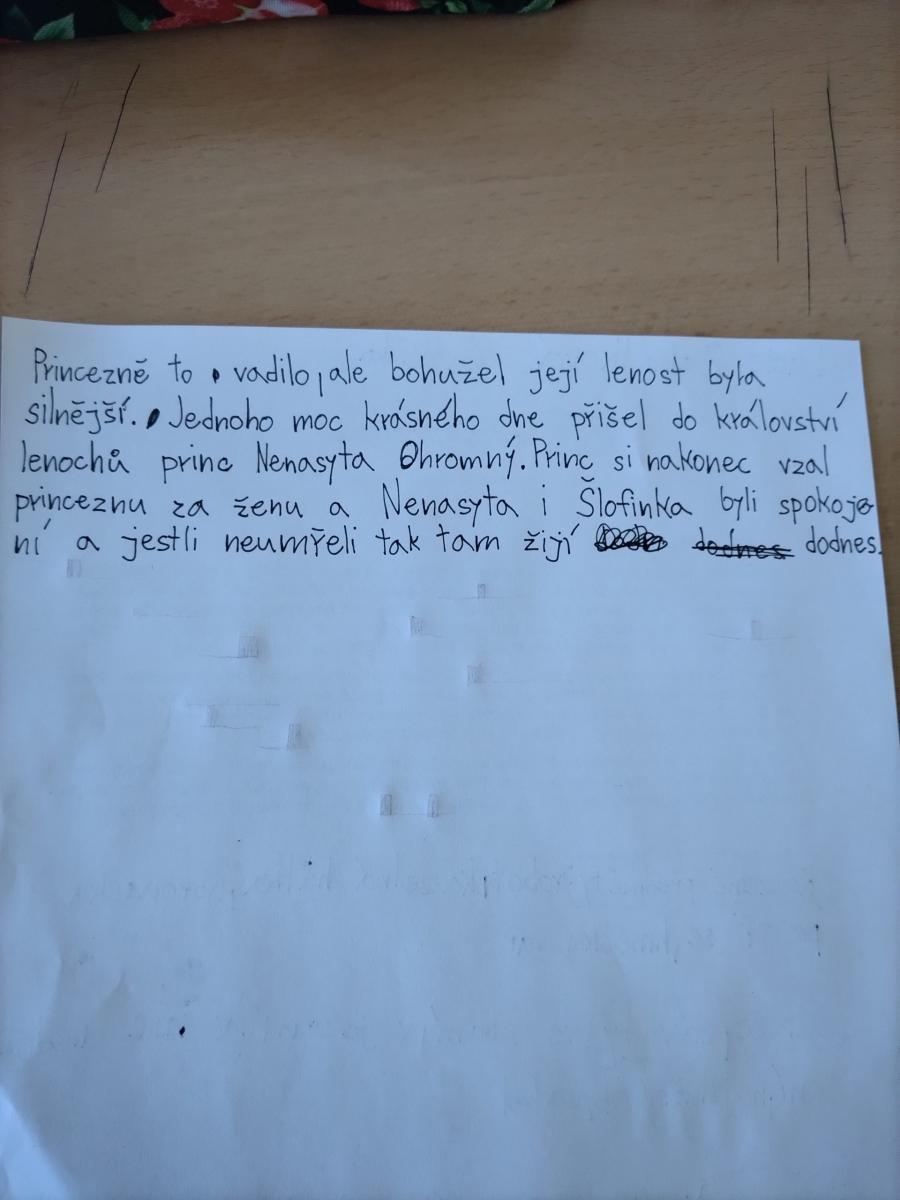 Princezně to vadilo, ale bohužel její lenost byla
silnější. Jednoho moc krásného dne přišel do království
lenochů princ Nenasyta Ohromný. Princ si nakonec vzal
princeznu za ženu a Nenasyta i Šlofinka byli spokoje
ní a jestli neumřeli tak tam žijí dodnes dodnes.